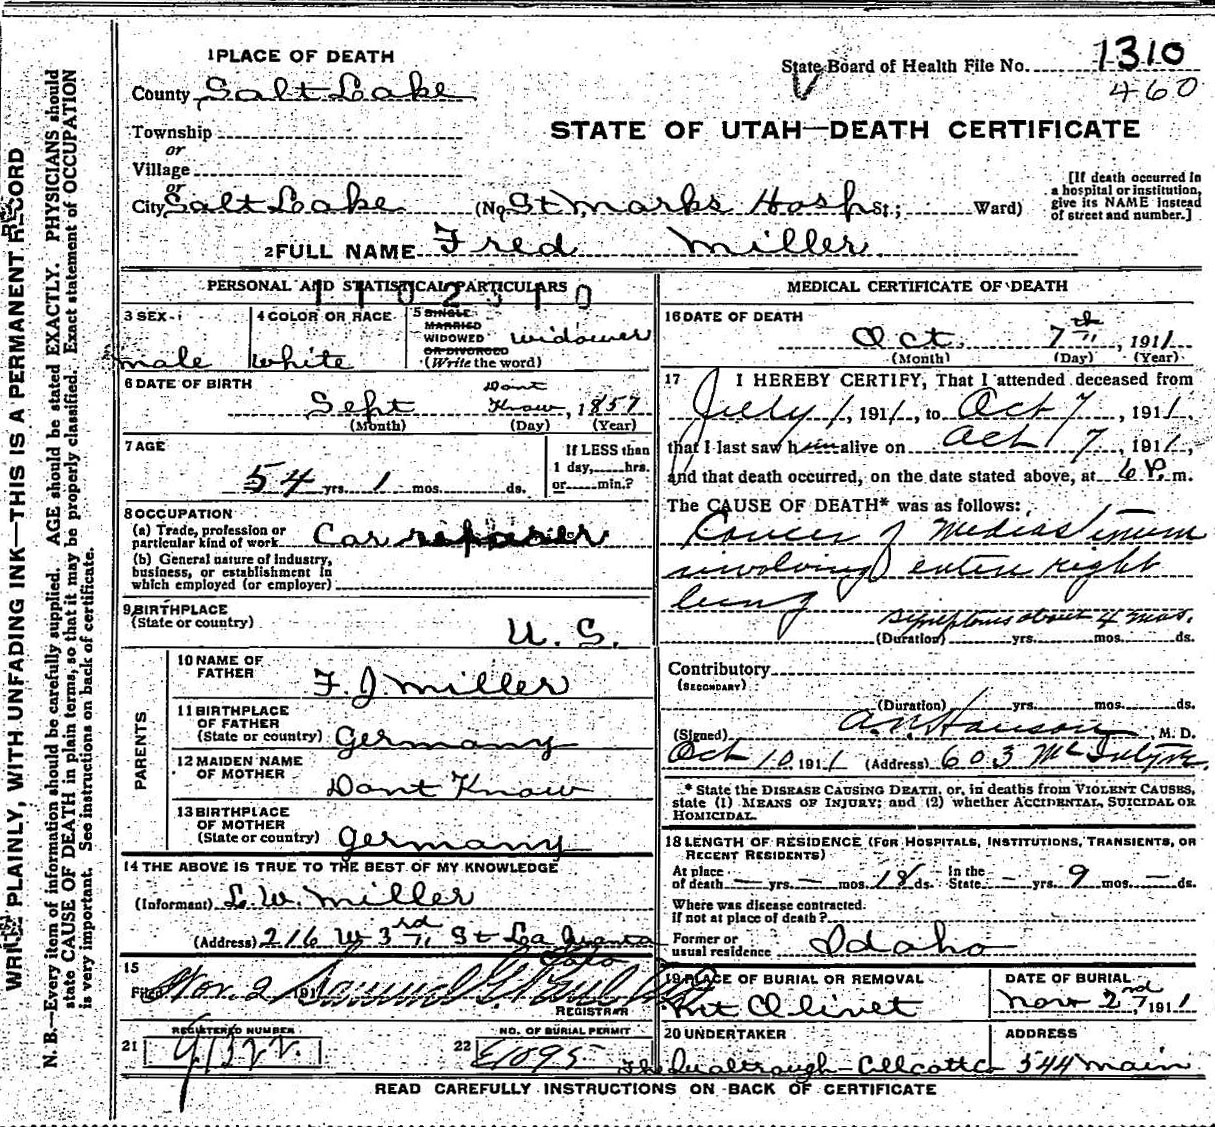 WRITE PLAINLY, WITH UNFADING INK—THIS IS A PERMANENT RECORD
N. B.—Every item of information should be carefully supplied. AGE should be stated EXACTLY. PHYSICIANS should
state CAUSE OF DEATH in plain terms, so that it may be properly classified. Exact statement of OCCUPATION
is very important. See instructions on back of certificate.
1 PLACE OF DEATH
State Board of Health File No. 1310
460
County Salt Lake
STATE OF UTAH—DEATH CERTIFICATE
Township
or
Village
or
City Salt Lake (No St Marks Hosp St.; Ward)
[If death occurred in
a hospital or institution,
give its NAME instead
of street and number.]
2 FULL NAME Fred Miller
PERSONAL AND STATISTICAL PARTICULARS
1102310
3 SEX
male
4 COLOR OR RACE
White
5 SINGLE
MARRIED
WIDOWED
OR DIVORCED
(Write the word)
widower
6 DATE OF BIRTH
Sept Dont Know, 1857
(Month) (Day) (Year)
7 AGE
54 yrs. 1 mos. ds.
If LESS than
1 day, hrs.
or min.?
8 OCCUPATION
(a) Trade, profession or
particular kind of work Car repairer
(b) General nature of industry,
business, or establishment in
which employed (or employer)
9 BIRTHPLACE
(State or country)
U. S.
PARENTS
10 NAME OF
FATHER
F. J. Miller
11 BIRTHPLACE
OF FATHER
(State or country)
Germany
12 MAIDEN NAME
OF MOTHER
Dont Know
13 BIRTHPLACE
OF MOTHER
(State or country)
Germany
14 THE ABOVE IS TRUE TO THE BEST OF MY KNOWLEDGE
(Informant) L. W. Miller
(Address) 216 W 3rd St La Juanta
Colo
15
Filed Nov. 2 191
REGISTRAR
REGISTERED NUMBER
21
NO. OF BURIAL PERMIT
22 E1095
MEDICAL CERTIFICATE OF DEATH
16 DATE OF DEATH
Oct. 7th, 1911
(Month) (Day) (Year)
17 I HEREBY CERTIFY, That I attended deceased from
July 1, 1911, to Oct 7, 1911,
that I last saw him alive on Oct 7, 1911,
and that death occurred, on the date stated above, at 6 P. m.
The CAUSE OF DEATH* was as follows:
Cancer of Mediastinum
involving entire right
lung
Symptoms about 4 mos.
(Duration) yrs. mos. ds.
Contributory
(SECONDARY)
(Duration) yrs. mos. ds.
(Signed) Hanson, M. D.
Oct 10 1911 (Address) 603 McIntyre
* State the DISEASE CAUSING DEATH, or, in deaths from VIOLENT CAUSES,
state (1) MEANS OF INJURY; and (2) whether ACCIDENTAL, SUICIDAL OR
HOMICIDAL.
18 LENGTH OF RESIDENCE (FOR HOSPITALS, INSTITUTIONS, TRANSIENTS, OR
RECENT RESIDENTS)
At place
of death — yrs. — mos. 18 ds. In the
State — yrs. 9 mos. — ds.
Where was disease contracted
If not at place of death?
Former or
usual residence Idaho
19 PLACE OF BURIAL OR REMOVAL
Mt Olivet
DATE OF BURIAL
Nov 2nd, 1911
20 UNDERTAKER
ADDRESS
544 Main
READ CAREFULLY INSTRUCTIONS ON BACK OF CERTIFICATE